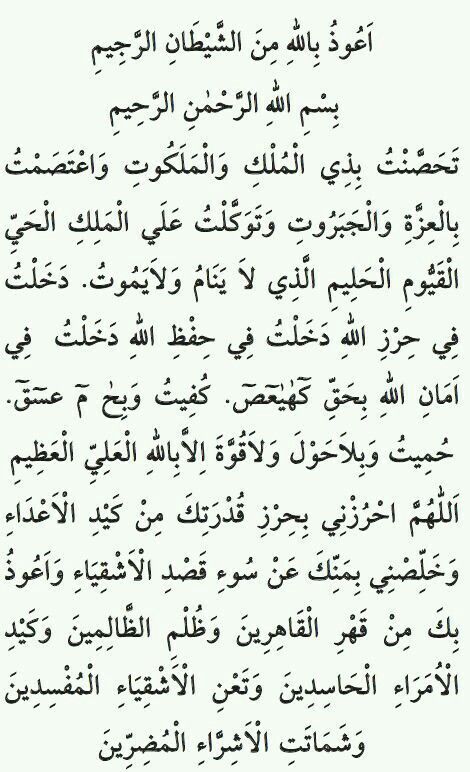 اَعُوذُ بِاللهِ مِنَ الشَّيْطَانِ الرَّجِيمِ
بِسْمِ اللهِ الرَّحْمٰنِ الرَّحِيمِ
تَحَصَّنْتُ بِذِي الْمُلْكِ وَالْمَلَكُوتِ وَاعْتَصَمْتُ
بِالْعِزَّةِ وَالْجَبَرُوتِ وَتَوَكَّلْتُ عَلَي الْمَلِكِ الْحَيِّ
الْقَيُّومِ الْحَلِيمِ الَّذِي لاَ يَنَامُ وَلاَيَمُوتُ. دَخَلْتُ
فِي حِرْزِ اللهِ دَخَلْتُ فِي حِفْظِ اللهِ دَخَلْتُ فِي
اَمَانِ اللهِ بِحَقِّ كٓهٰيٰعٓصٓ. كُفِيتُ وَبِحٰ مٓ عٓسٓقٓ.
حُمِيتُ وَبِلاَحَوْلَ وَلاَقُوَّةَ اِلاَّبِاللهِ الْعَلِيِّ الْعَظِيمِ
اَللّٰهُمَّ احْرُزْنِي بِحِرْزِ قُدْرَتِكَ مِنْ كَيْدِ الْاَعْدَاءِ
وَخَلِّصْنِي بِمَنِّكَ عَنْ سُوءِ قَصْدِ الْاَشْقِيَاءِ وَاَعُوذُ
بِكَ مِنْ قَهْرِ الْقَاهِرِينَ وَظُلْمِ الظَّالِمِينَ وَكَيْدِ
الْاُمَرَاءِ الْحَاسِدِينَ وَتَعْنِ الْاَشْقِيَاءِ الْمُفْسِدِينَ
وَشَمَاتَتِ الْاَشِرَّاءِ الْمُضِرِّينَ